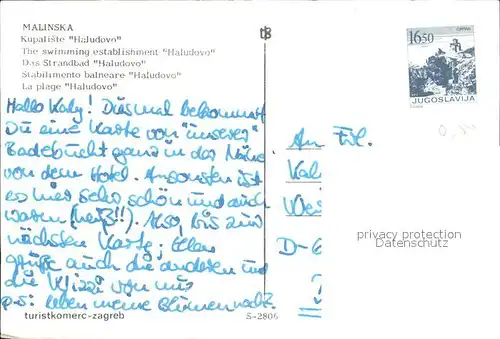 MALINSKA
Kupalište "Haludovo"
The swimming establishment "Haludovo"
Das Strandbad "Haludovo"
Stabilimento balneare "Haludovo"
La plage "Haludovo"
16.50
JUGOSLAVIJA
Hallo Katy! Diesmal bekommst
Du eine Karte von "unserer"
Badebucht ganz in der Nähe
von dem Hotel. Ansonsten ist
es hier sehr schön und auch
warm (heiß!!). Also, bis zur
nächsten Karte;
grüße auch die anderen und
die von mir
p.s: leben meine Blumen noch?
An Frl.
D-6
privacy protection
Datenschutz
turistkomerc-zagreb
S-2806